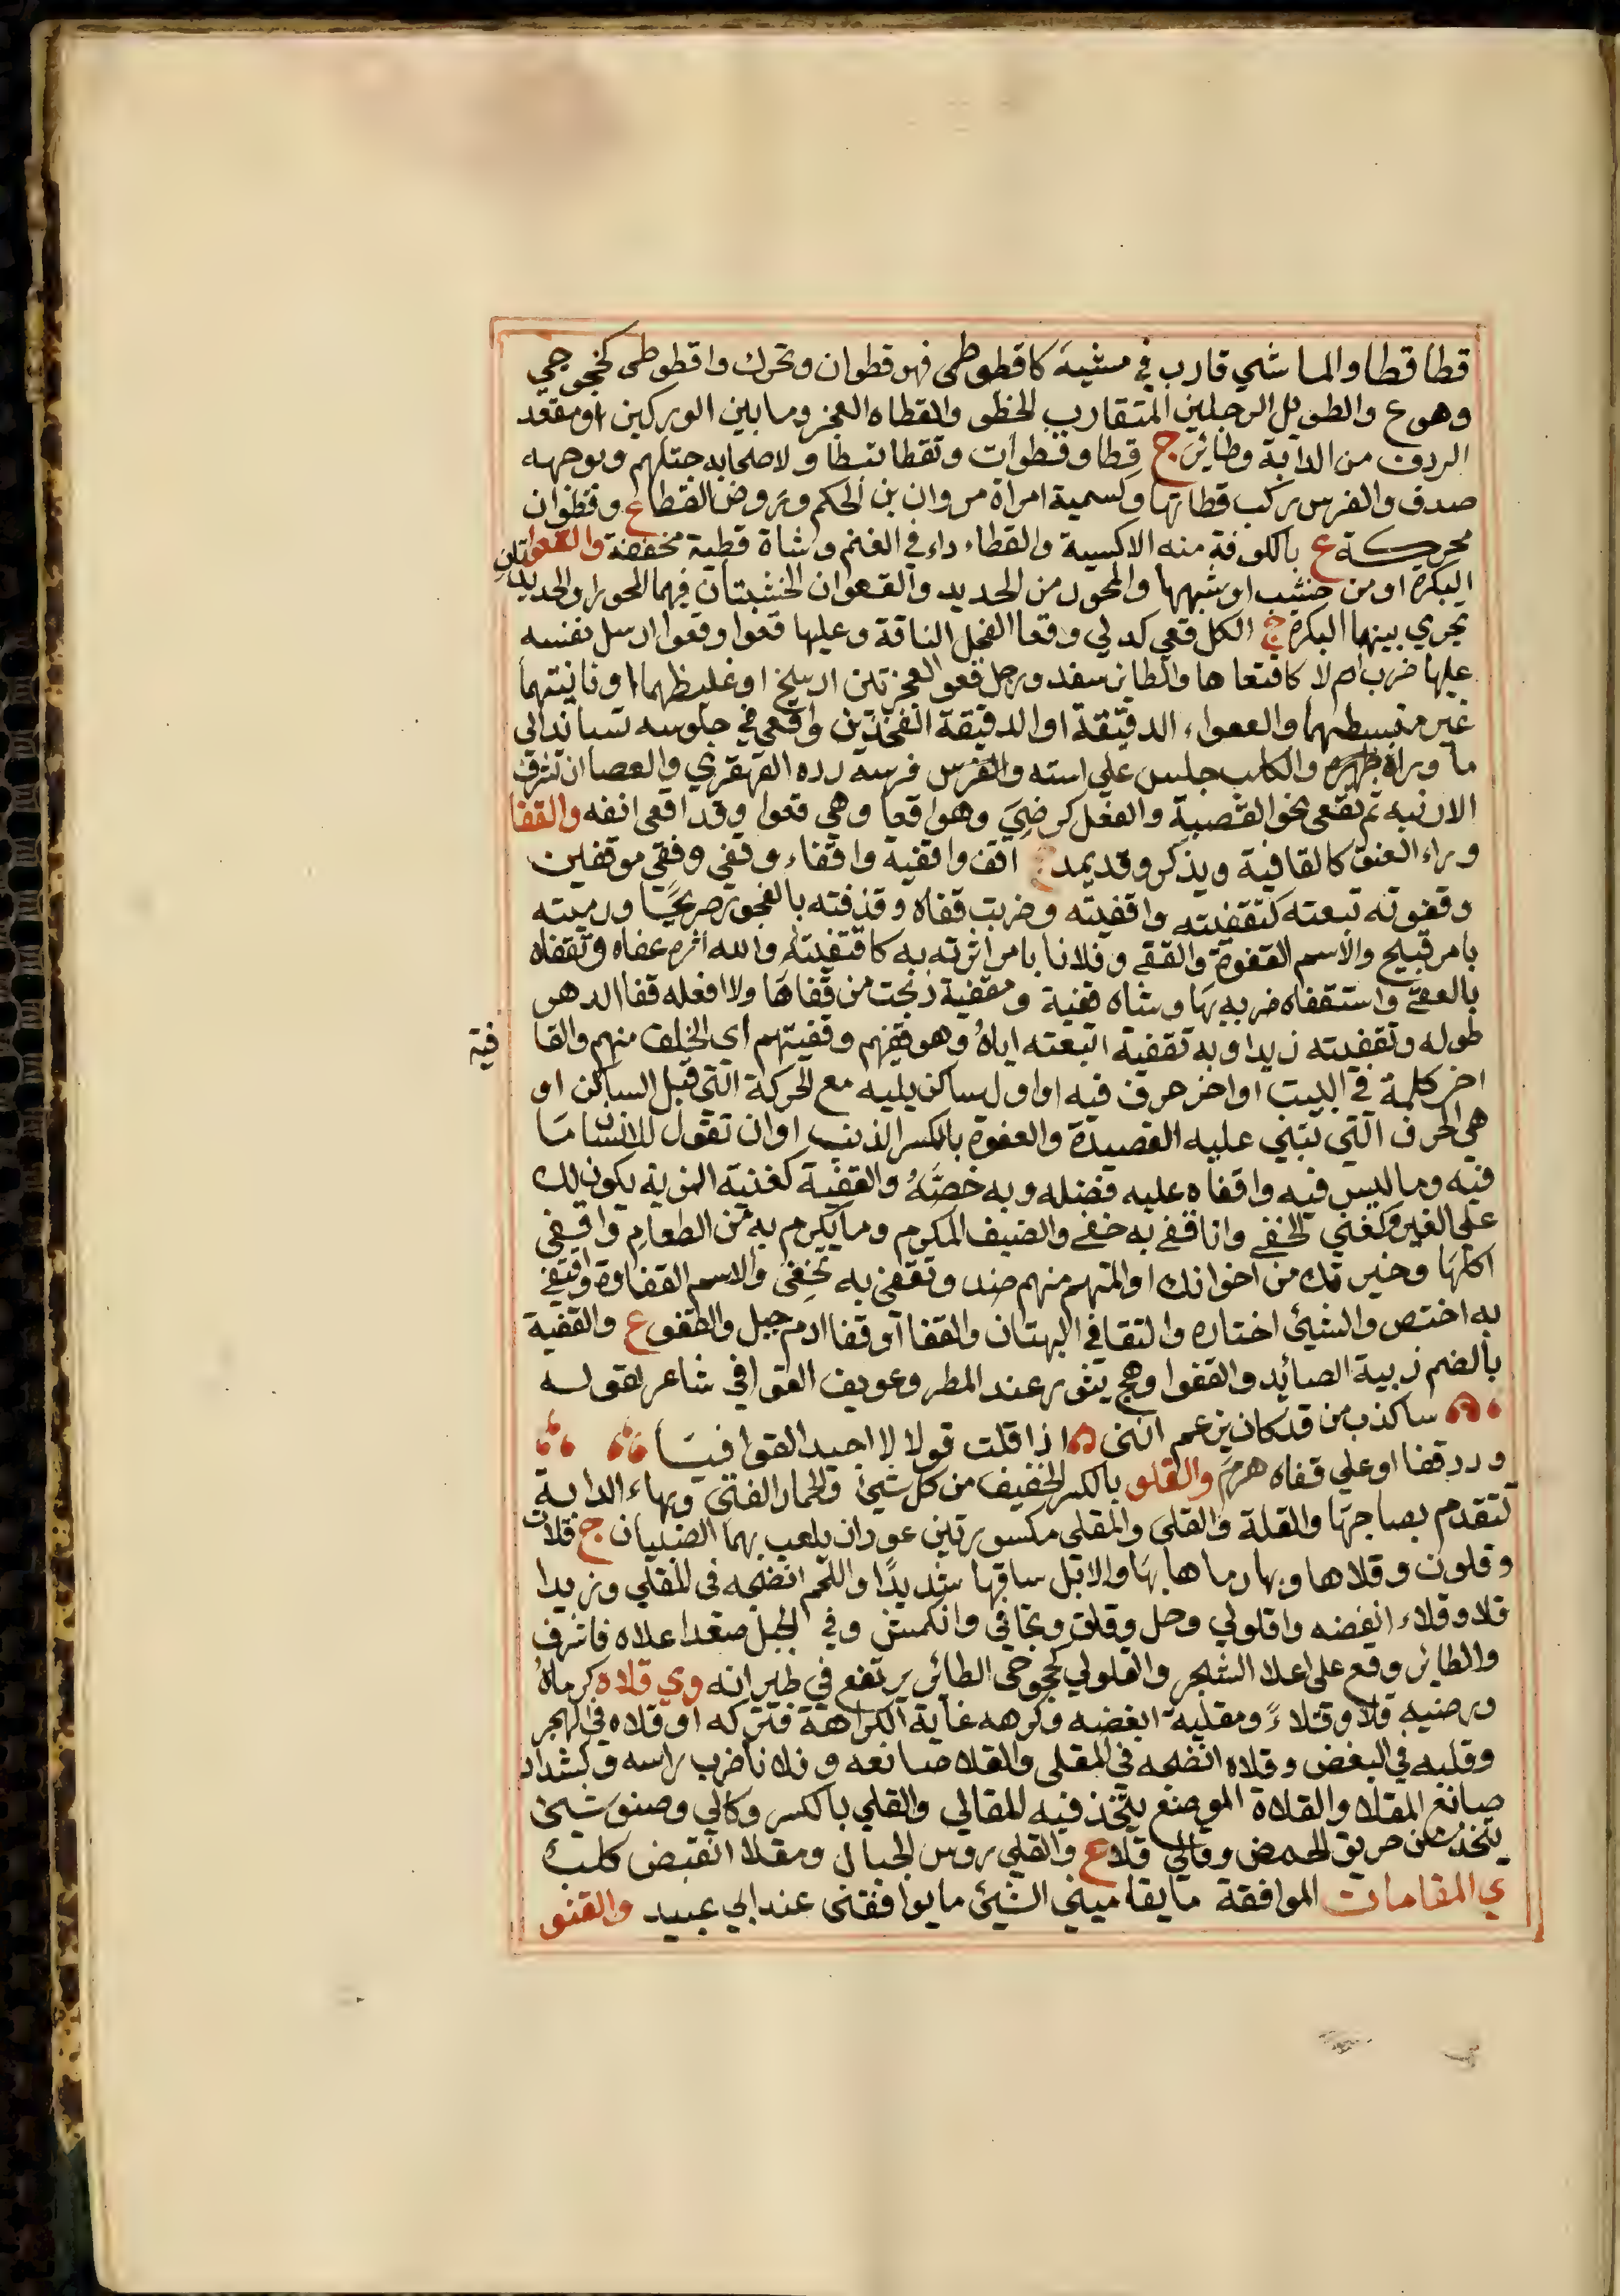 قطا قطا والماشي قارب في مشيه كاقطوطى فهو قطوان وتحرك واقطوطى كخجوجي
وهو ع والطويل الرجلين المتقارب الخطو والقطاه العجز وما بين الوركين او مقعد
الردف من الدابة وطائر ج قطا وقطوات وتقطا تبطا ولاصحابه ختلهم وبوجهه
صدف والفرس ركب قطاتها وكسمية امراة مروان بن الحكم وروض القطا ع وقطوان
محركة ع بالكوفة منه الاكسية والقطاء داء في الغنم وشاة قطية مخففة والقعو تان
البكرة او من خشب او شبهها والمحور من الحديد والقعوان الخشبتان فيهما المحور او الحديدتان
يجري بينهما البكرة ج الكل قعي كدلي وقعا الفحل الناقة وعليها قعوا وقعوا ارسل نفسه
عليها ضرب ام لا كاقتعاها والطائر سفد ورجل قعو العجزتين ارسخ او غليظهما او ناتيتهما
غير منبسطهما والقعواء الدقيقة او الدقيقة الفخذين واقعى في جلوسه تساند الى
ما وراه ظهره والكلب جلس على استه والفرس فرسه رده القهقري والقعا ان تشرف
الارنبه ثم تقعى نحو القصبة والفعل كرضي وهو اقعا وهي قعوا وقد اقعى انفه والقفا
وراء العنق كالقافية ويذكر وقد يمد ج اقف واقفية واقفاء وقفي وقفي موقفين
وقفوته تبعته كتقفيته واقفيته وضربت قفاه وقذفته بالفجور صريحًا ورميته
بامر قبيح والاسم القفوة والقفي وفلانا بامر اثرته به كاقتفيته والله اثره عفاه وتقفاه
بالعصي واستقفاه ضربه بها وشاه قفية ومقفية ذبحت من قفاها ولا افعله قفا الدهر
طوله وتقفيته زيدا وبه تقفية اتبعته اياه وهو قفيهم وقفيتهم اي الخلف منهم والقا فية
اخر كلمة في البيت او اخر حرف فيه او اول ساكن يليه مع الحركة التي قبل الساكن او
هي الحرف التي تبنى عليه القصيدة والقفوة بالكسر الذنب او ان تقول للانسان ما
فيه وما ليس فيه واقفاه عليه فضله وبه خصَّهُ والقفية كغنية المزية يكون لك
على الغير وكغني الحفي وانا قفي به حفي والضيف المكرم وما يكرم به من الطعام واقتفى
اكلها وخيرتك من اخوانك او المتهم منهم ضد وتقفى به تحفى والاسم القفاوة واقتفى
به اختص والشيئ اختاره والتقافي البهتان والقفا او قفا ادم جبل والقفو ع والقفية
بالضم زبية الصائد والقفوا وهج يثور عند المطر وعويف القوافي شاعر لقوله
ساكذب من قد كان يزعم انني اذا قلت قولا لا اجيد القوافيا
ورد قفا او على قفاه هرم والقلو بالكسر الخفيف من كل شيئ والحمار الفتى وبهاء الدابة
تتقدم بصاحبها والقلة والقلى والمقلى مكسورتين عودان يلعب بهما الصبيان ج قلات
وقلون وقلاها وبها رماها بها والابل ساقها شديدًا واللحم انضجه في المقلي وزيدا
قلا وقلاء ابغضه واقلولي رحل وقلق وتجافي وانكمش وفي الجبل صعد اعلاه فاشرف
والطائر وقع على اعلا الشجر والقلولي كخجوجي الطائر يرتفع في طيرانه وي قلاه كرماهُ
ورضيه قلا وقلاءً ومقلية ابغضه وكرهه غاية الكراهة فتركه او قلاه في الهجر
وقليه في البغض وقلاه انضجه في المقلي والقلا صانعه وفلانا ضرب راسه وكشداد
صانع المقلا والقلاة الموضع يتخذ فيه المقالي والقلي بالكسر وكالي وصنو شيئ
يتخذ من حريق الحمض وقالي قلا ع والقلي روس الجبال ومقلا القنيص كلب
ي المقامات الموافقة ما يقاميني الشيئ ما يوافقني عند ابي عبيد والقنو